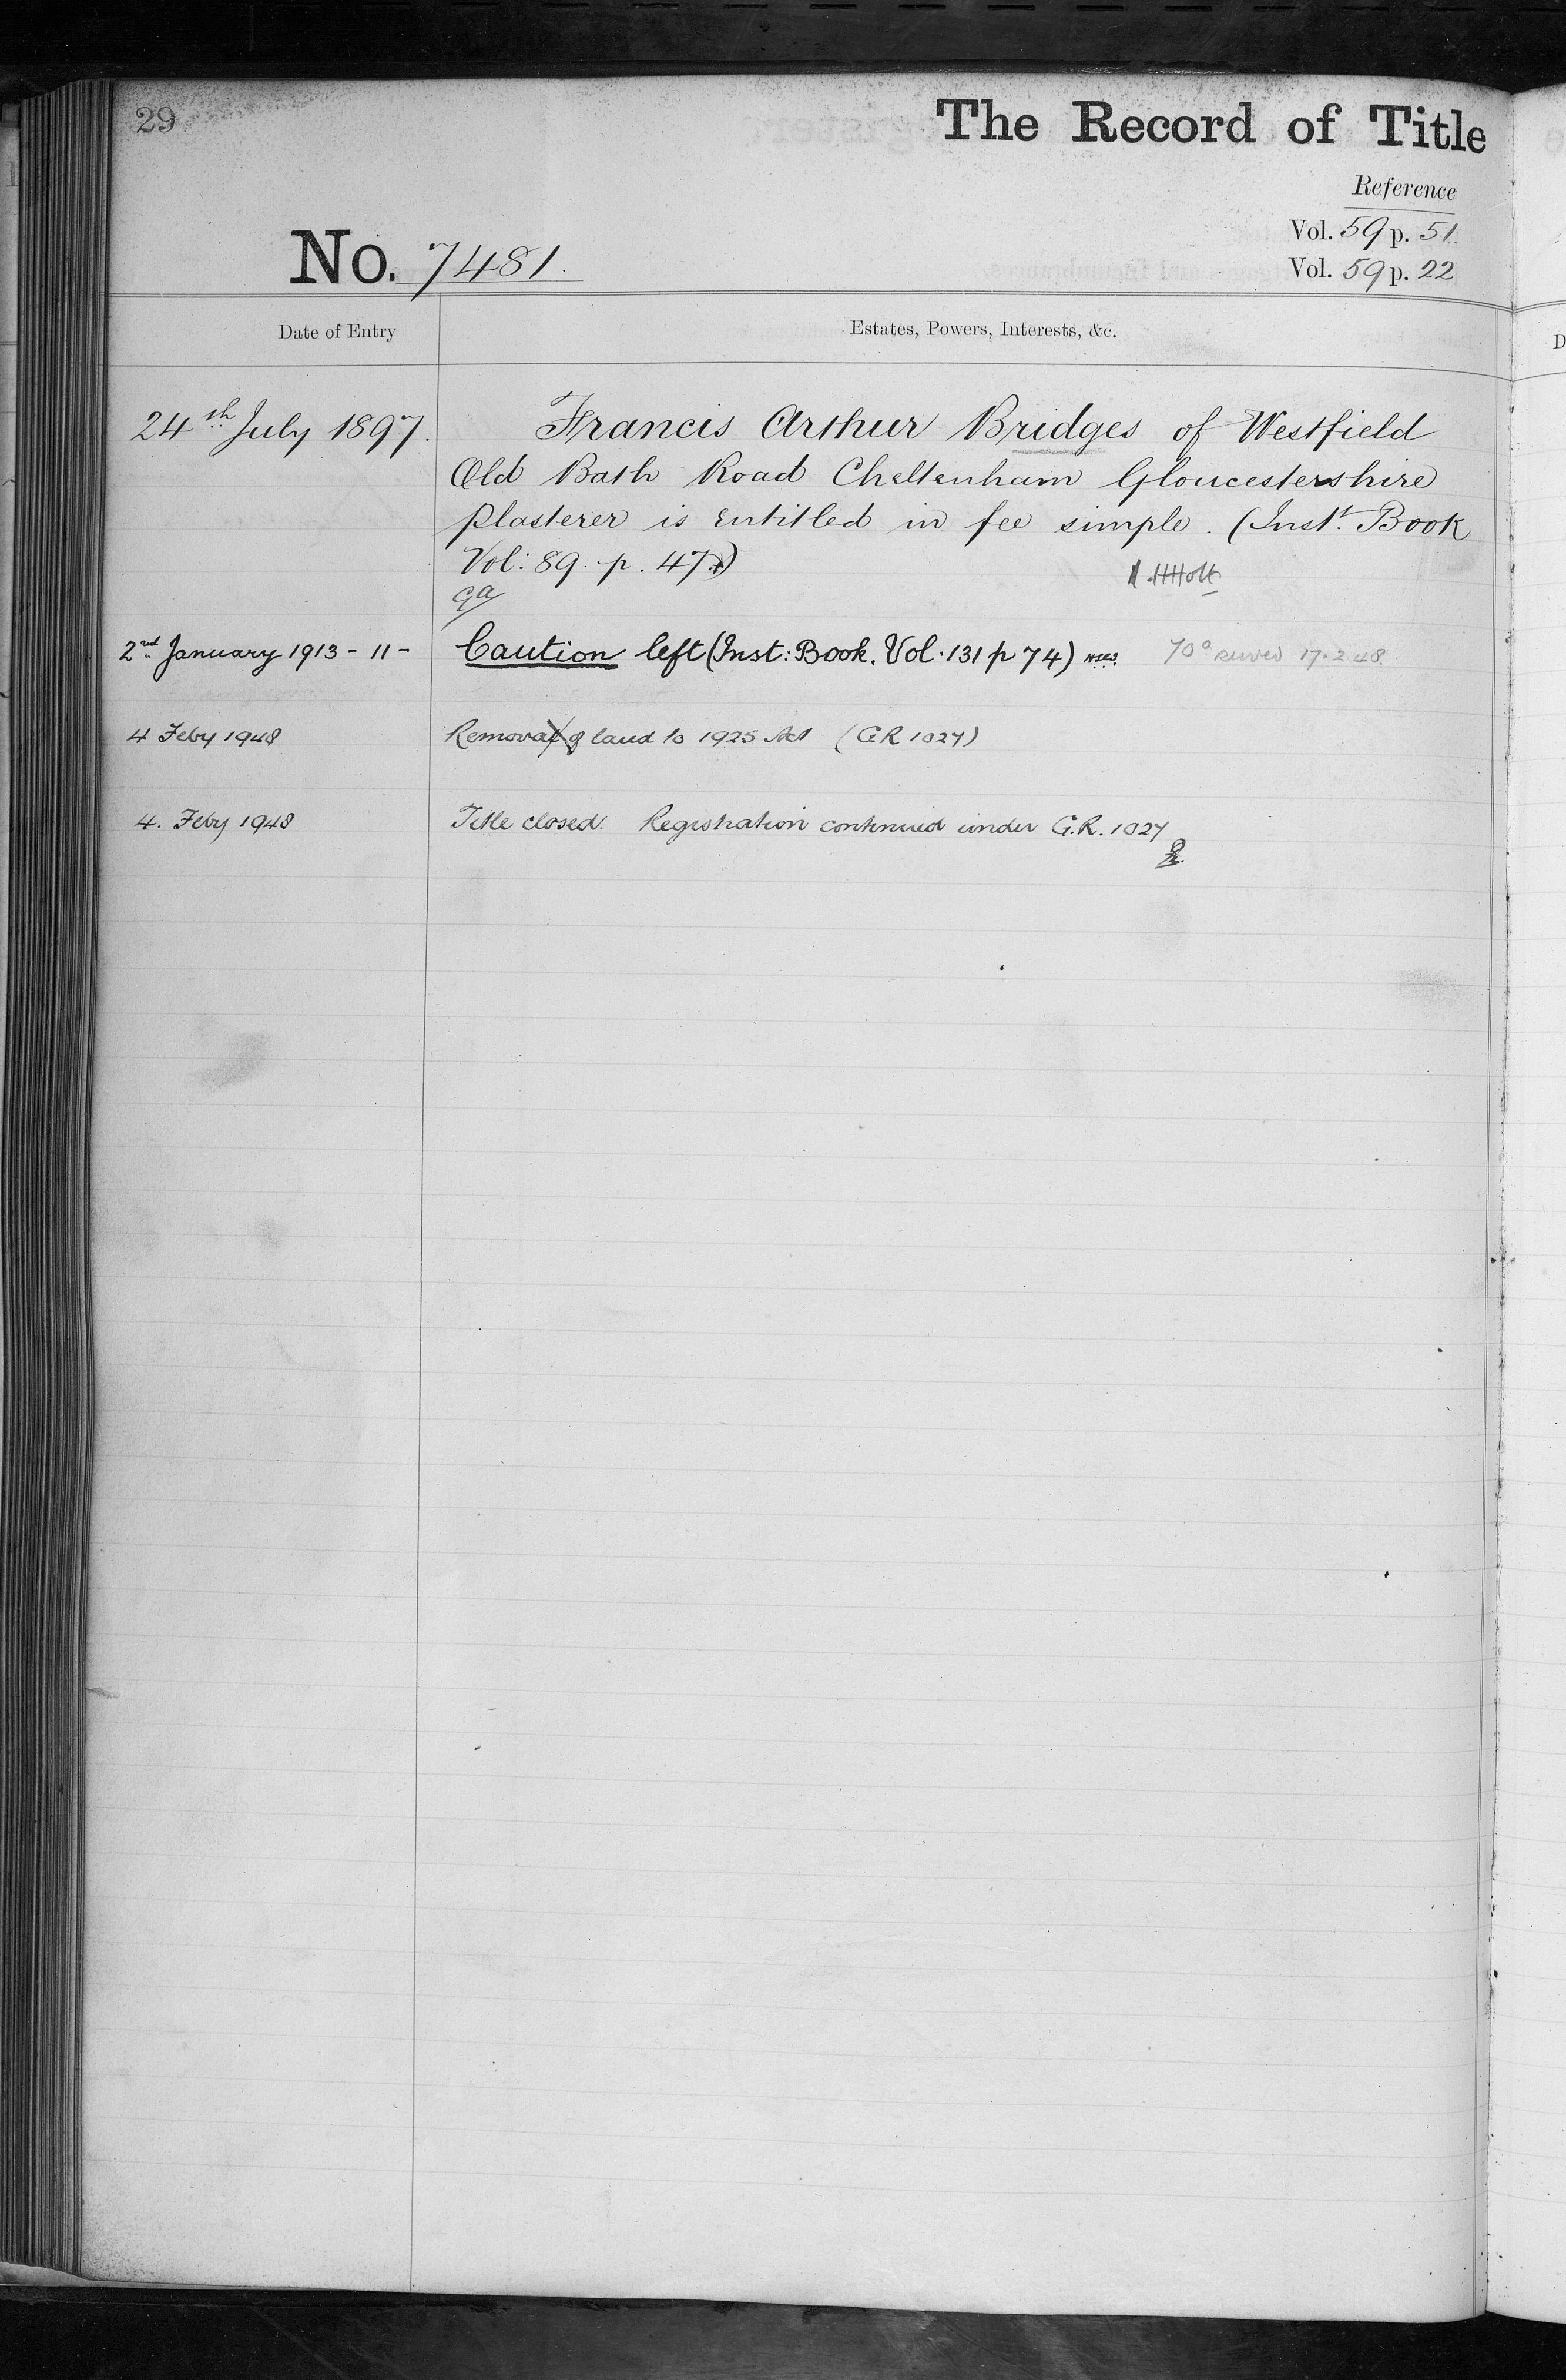 29
The Record of Title
Reference
Vol. 59 p. 51
No. 7481.
Vol. 59 p. 22
Date of Entry
Estates, Powers, Interests, &c.
24th July 1897.
Francis Arthur Bridges of Westfield
Old Bath Road Cheltenham Gloucestershire
plasterer is entitled in fee simple. (Inst. Book
Vol: 89. p. 47)
HHolt
2nd January 1913 - 11 -
Caution left (Inst: Book. Vol. 131 p 74)
17.2.48
4 Feby 1948
Removal of land to 1925 Act (G.R 1027)
4. Feby 1948
Title closed. Registration continued under G.R. 1027